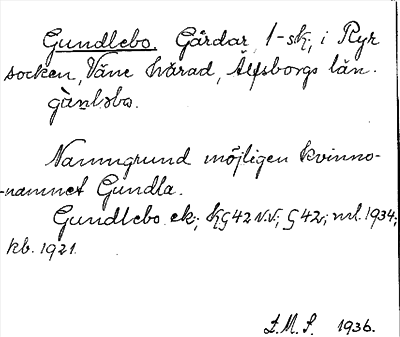 Gundlebo. Gårdar, 1-sk, i Ryr
socken, Väne härad, Älfsborgs län.
gùnləbo.
Namngrund möjligen kvinno-
-namnet Gundla.
Gundlebo ek; KG 42 N.V.; G 42; ml. 1934;
kb. 1921
L.M.S. 1936.